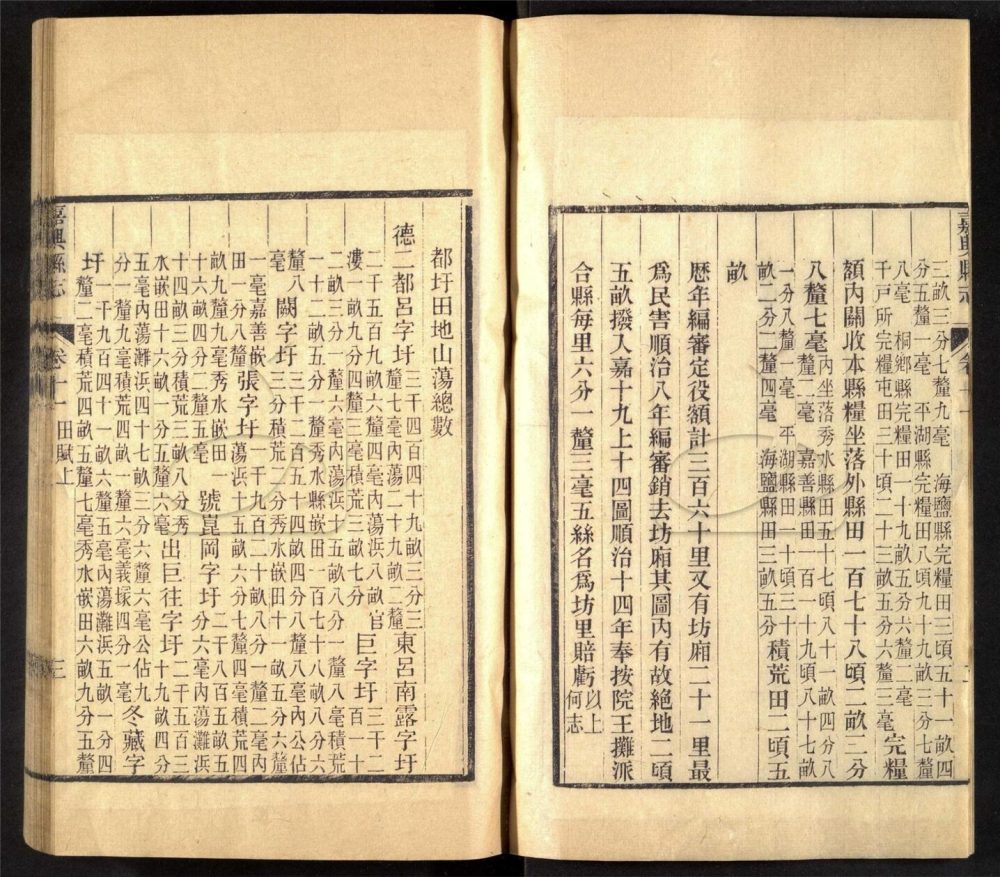 三畝三分七釐九毫　海鹽縣完糧田三頃五十一畝四
分五釐一毫　平湖縣完糧田八頃九十九畝三分七釐
八毫　桐鄉縣完糧田一十九畝五分六釐二毫
千戸所完糧屯田三十頃二十三畝五分六釐三毫完糧
額内關收本縣糧坐落外縣田一百七十八頃二畝二分
八釐七毫内坐落秀水縣田五十七頃八十一畝四分八
釐二毫　嘉善縣田一百一十九頃八十七畝
一分八釐一毫　平湖縣田一十頃三十
畝二分二釐四毫　海鹽縣田三畝五分積荒田二頃五
畝
歷年編審定役額計三百六十里又有坊廂二十一里最
爲民害順治八年編審銷去坊廂其圖内有故絶地二頃
五畝撥入嘉十九上十四圖順治十四年奉按院王攤派
合縣每里六分一釐三毫五絲名爲坊里賠虧以上何志
嘉興縣志　卷十一　田賦上　三
都圩田地山蕩總數
德二都呂字圩三千四百四十九畝三分三釐七毫内蕩二十九畝二釐東呂南露字圩
二千五百九畝六釐四毫内蕩浜八畝官漊一畝九分四釐三毫積荒三畝七分巨字圩三千二百一十
二畝三分一釐六毫内蕩浜十五畝八分一釐八毫積荒
一十二畝五分一釐秀水縣嵌田一百七十八畝八分六
釐八毫闕字圩三千二百五十四畝四分八釐八毫内公佔三分積荒二分秀水嵌田十一畝五分六釐
一毫嘉善嵌田一分八釐張字圩一千九百二十畝八分一釐二毫内蕩浜十五畝六分七釐四毫積荒四
畝九釐九毫秀水嵌田一十六畝四分二釐五毫號崑岡字圩二千八百五畝五分六毫内蕩灘浜
十四畝三分積荒三畝八分秀水嵌田十六畝一分五釐出巨往字圩二千五百三十九畝四分
五毫内蕩灘浜四十七畝三分六釐六毫公佔九
分一釐九毫積荒四畝一釐六毫義塚四分一毫冬藏字
圩一千九百四十一畝六釐五毫内蕩灘浜五畝一分四釐二毫積荒四畝五釐七毫秀水嵌田六畝九分五釐